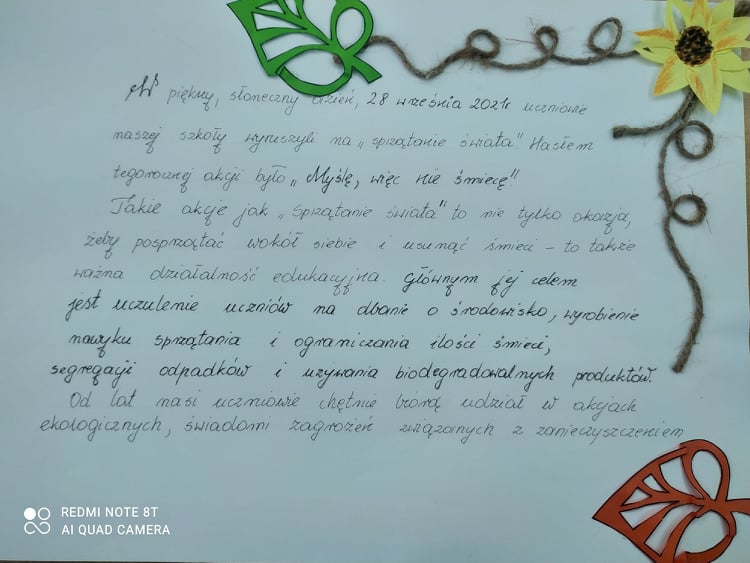 W piękny, słoneczny dzień, 28 września 2021r. uczniowie
naszej szkoły wyruszyli na „sprzątanie świata". Hasłem
tegorocznej akcji było „Myślę, więc nie śmiecę"!
Takie akcje jak „Sprzątanie świata" to nie tylko okazja,
żeby posprzątać wokół siebie i usunąć śmieci – to także
ważna działalność edukacyjna. Głównym jej celem
jest uczulenie uczniów na dbanie o środowisko, wyrobienie
nawyku sprzątania i ograniczania ilości śmieci,
segregacji odpadków i używania biodegradowalnych produktów.
Od lat nasi uczniowie chętnie biorą udział w akcjach
ekologicznych, świadomi zagrożeń związanych z zanieczyszczeniem
REDMI NOTE 8T
AI QUAD CAMERA